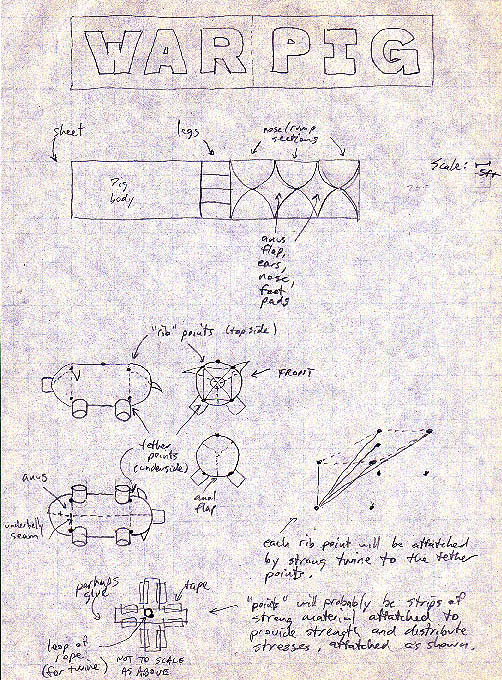 WAR PIG
sheet
legs
nose/rump
sections
Scale:
5ft
Pig
body
anus
flap,
ears,
nose,
foot
pads
"rib" points (topside)
FRONT
tether
points
(underside)
anus
anal
flap
underbelly
seam
each rib point will be attatched
by strong twine to the tether
points.
perhaps
glue
tape
"points" will probably be strips of
strong material attatched to
provide strength and distribute
stresses, attatched as shown.
loop of
rope
(for twine)
NOT TO SCALE
AS ABOVE